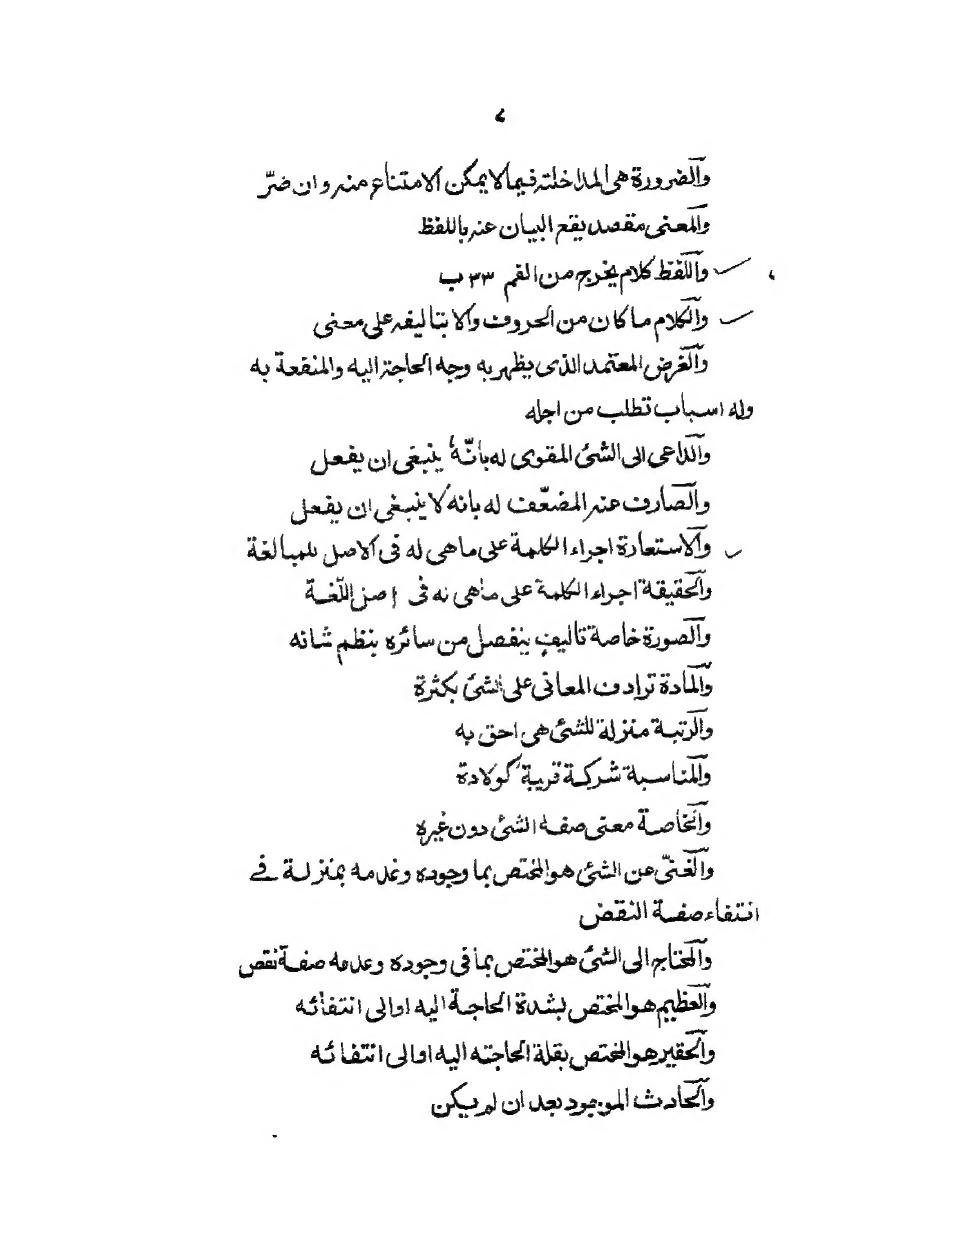 ٧
والضرورة هى المداخلته فيما لا يمكن الامتناع منه وان ضرّ
والمعنى مقصد يقع البيان عنه باللفظ
واللفظ كلام يخرج من الفم ٣٣ ب
والكلام ما كان من الحروف والا بتاليفه على معنى
والغرض المعتمد الذى يظهر به وجه الحاجة اليه والمنقعة به
وله اسباب تطلب من اجله
والداعى الى الشئ المقوى له بأنّه ينبغى ان يفعل
والصارف عنه المضعّف له بانه لا ينبغى ان يفعل
والاستعارة اجراء الكلمة على ماهى له فى الاصل للمبالغة
والحقيقة اجراء الكلمة على ماهى له فى اصل اللّغة
والصورة خاصة تاليف ينفصل من سائره بنظم شانه
والمادة ترادف المعانى على الشئ بكثرة
والرتبة منزلة للشئ هى احق به
والمناسبة شركة قريبة كولادة
والخاصة معنى صفه الشئ دون غيره
والغنىّ عن الشئ هو المختص بما وجوده وعدمه بمنزلة فى
انتفاء صفة النقض
والمحتاج الى الشئ هو المختص بما فى وجوده وعدمه صفة نقص
والعظيم هو المختص بشدة الحاجة اليه اوالى انتفائه
والحقير هو المختص بقلة الحاجته اليه اوالى انتفائه
والحادث الموجود بعد ان لم يكن